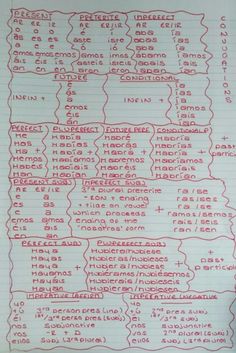 PRESENT PRETERITE IMPERFECT
AR ER IR AR ER/IR AR ER/IR
o o o é í aba ía
as es es aste iste abas ías
a e e ó ió aba ía
amos emos imos amos imos ábamos íamos
áis éis ís asteis isteis abais íais
an en en aron ieron aban ían
CONJUGATIONS
FUTURE CONDITIONAL
é ía
ás ías
INFIN + á INFIN + ía
emos íamos
éis íais
án ían
PERFECT PLUPERFECT FUTURE PERF CONDITIONAL P
He Había Habré Habría
Has Habías Habrás Habrías
Ha + Había + Habrá + Habría + past
Hemos Habíamos Habremos Habríamos participle
Habéis Habíais Habréis Habríais
Han Habían Habrán Habrían
PRESENT SUBJ IMPERFECT SUBJ
AR ER/IR 3rd plural preterite ra/se
e a - ron + ending ras/ses
es as ra/se
e a which precedes + ramos/semos
emos amos ending of the rais/seis
éis áis 'nosotros' form ran/sen
en an
PERFECT SUBJ PLUPERFECT SUBJ
Haya Hubiera/hubiese
Hayas Hubieras/hubieses
Haya + Hubiera/hubiese + past
Hayamos Hubiéramos/hubiésemos participle
Hayáis Hubierais/hubieseis
Hayan Hubieran/hubiesen
IMPERATIVE (AFFIRM) IMPERATIVE (NEGATIVE)
yo yo
tú 3rd person (pres line) tú 2nd pres subj
él 1st/3rd person pres (subj) él 1st/3rd pres (subj)
nos subjunctive nos subjunctive
vos -R + D vos 2nd plural (subj)
ellos subj (3rd plural) ellos subj (3rd plural)